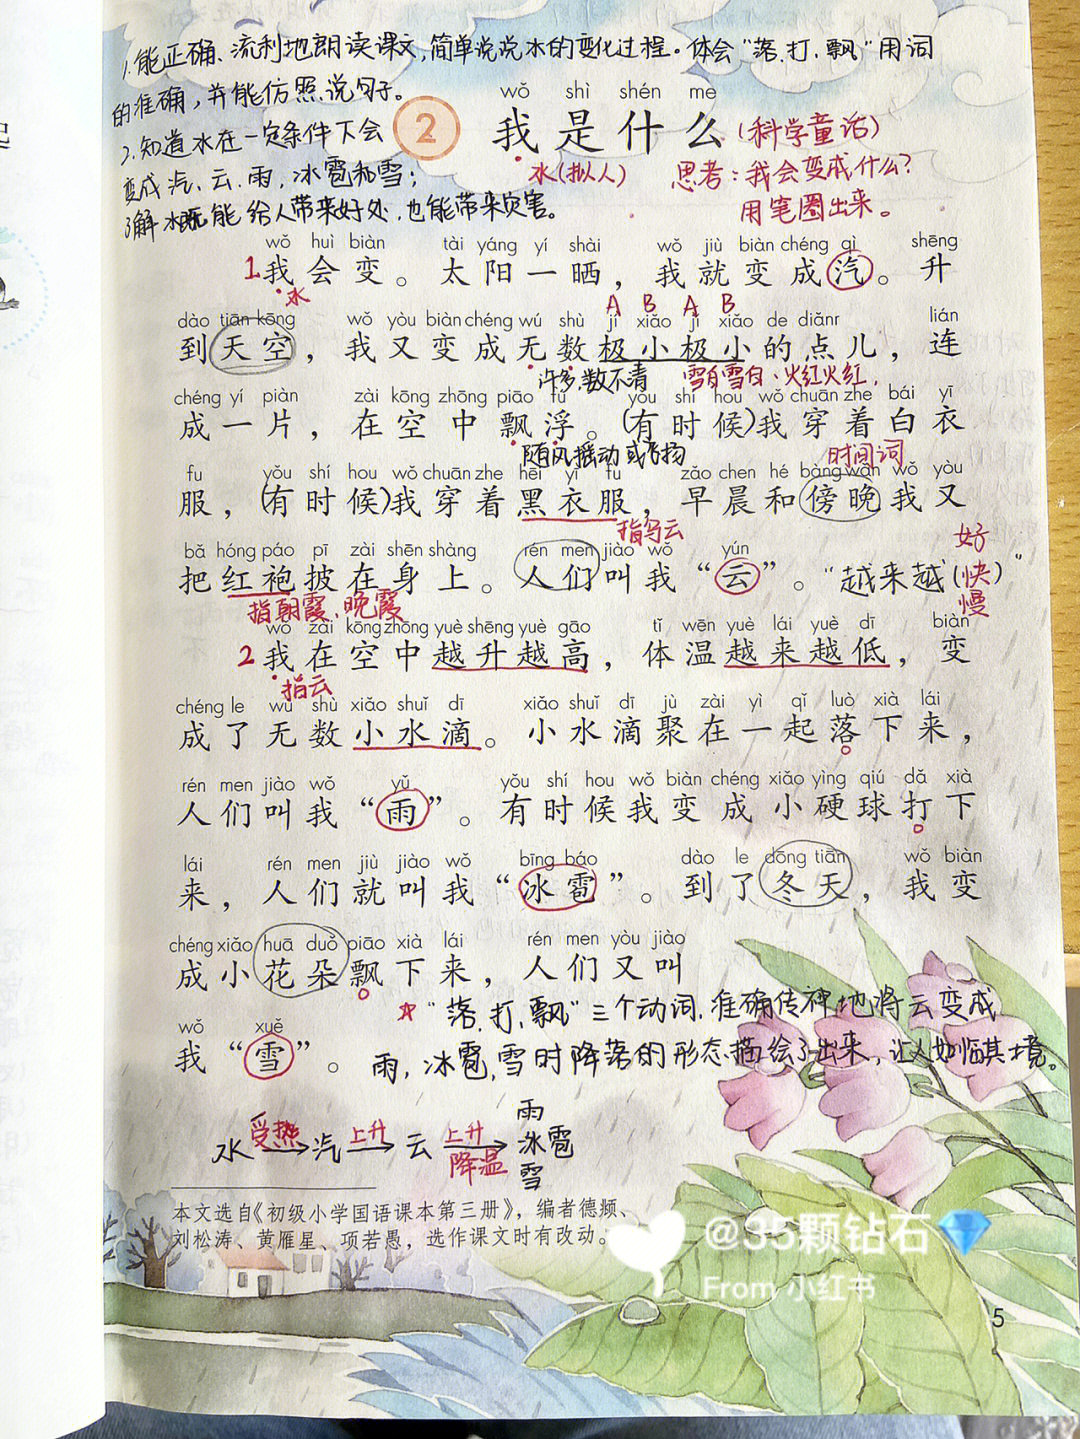 1.能正确、流利地朗读课文,简单说说水的变化过程。体会“落、打、飘”用词
的准确,并能仿照说句子。
2.知道水在一定条件下会
变成汽、云、雨,冰雹和雪;
3.解水既能给人带来好处,也能带来灾害。
wǒ shì shén me
2 我是什么 (科学童话)
水(拟人) 思考:我会变成什么?
用笔圈出来。
wǒ huì biàn tài yáng yí shài wǒ jiù biàn chéng qì shēng
1 我会变。太阳一晒,我就变成汽。升
水 A B A B
dào tiān kōng wǒ yòu biàn chéng wú shù jí xiǎo jí xiǎo de diǎnr lián
到天空,我又变成无数极小极小的点儿,连
许多,数不清 雪白雪白、火红火红,
chéng yí piàn zài kōng zhōng piāo fú yǒu shí hou wǒ chuān zhe bái yī
成一片,在空中飘浮。(有时候)我穿着白衣
随风摇动或飞扬 时间词
fu yǒu shí hou wǒ chuān zhe hēi yī fu zǎo chen hé bàng wǎn wǒ yòu
服,(有时候)我穿着黑衣服,早晨和傍晚我又
指乌云
bǎ hóng páo pī zài shēn shàng rén men jiào wǒ yún
好
把红袍披在身上。人们叫我“云”。“越来越(快)”
慢
指朝霞、晚霞
wǒ zài kōng zhōng yuè shēng yuè gāo tǐ wēn yuè lái yuè dī biàn
2 我在空中越升越高,体温越来越低,变
指云
chéng le wú shù xiǎo shuǐ dī xiǎo shuǐ dī jù zài yì qǐ luò xià lái
成了无数小水滴。小水滴聚在一起落下来,
rén men jiào wǒ yǔ yǒu shí hou wǒ biàn chéng xiǎo yìng qiú dǎ xià
人们叫我“雨”。有时候我变成小硬球打下
lái rén men jiù jiào wǒ bīng báo dào le dōng tiān wǒ biàn
来,人们就叫我“冰雹”。到了冬天,我变
chéng xiǎo huā duǒ piāo xià lái rén men yòu jiào
成小花朵飘下来,人们又叫
“落、打、飘”三个动词,准确传神地将云变成
wǒ xuě
我“雪”。
雨,冰雹,雪时降落的形态描绘了出来,让人如临其境。
雨
水 受热→ 汽 上升→ 云 上升 降温→ 冰雹
雪
本文选自《初级小学国语课本第三册》,编者德颎、
刘松涛、黄雁星、项若愚,选作课文时有改动。
@35颗钻石💎
From 小红书
5